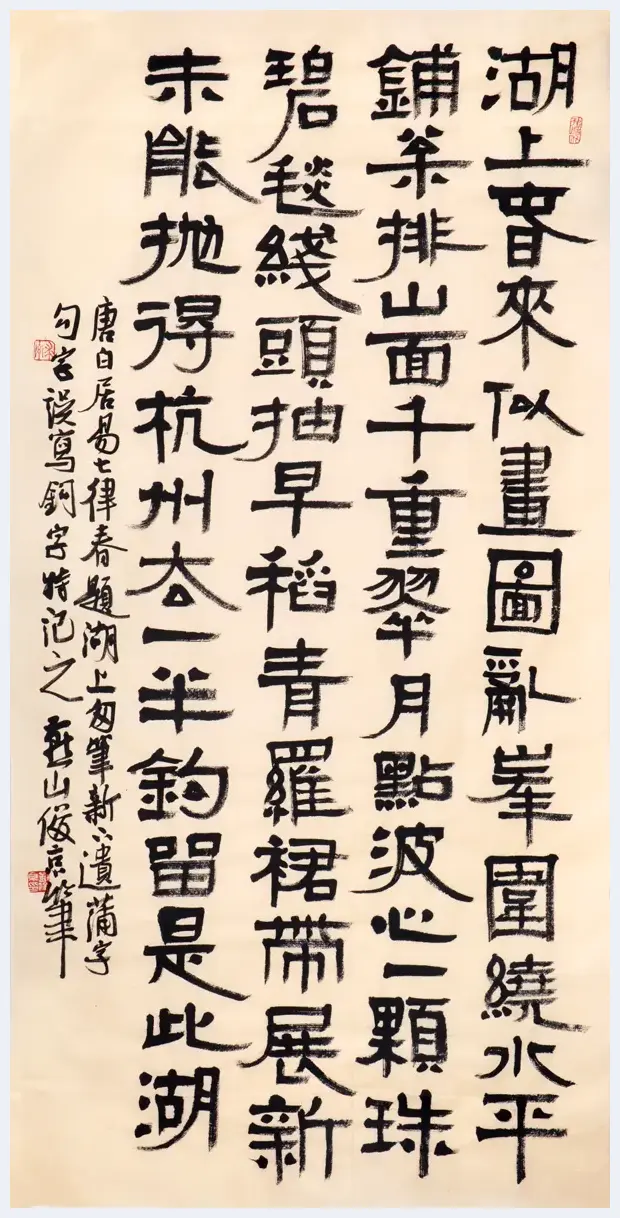 湖上春來似畫圖亂峯圍繞水平
鋪枀排山面千重翠月點波心一顆珠
碧毯綫頭抽早稻青羅裙帶展新
未能抛得杭州去一半鈎留是此湖
唐白居易七律春題湖上匆筆新下遺蒲字
勾字誤寫鉤字特記之 燕山俊京筆